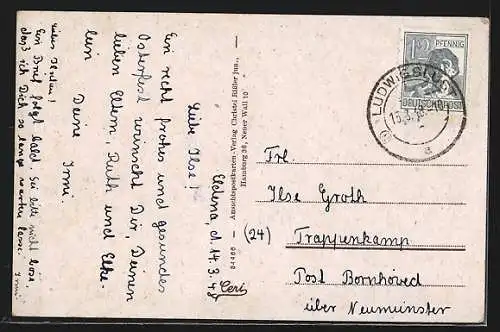 Eldena, d. 14. 3. 48
Liebe Ilse!
Ein recht frohes und gesundes
Osterfest wünscht Dir, Deinen
lieben Eltern, Ruth und Elke-
lein
Deine
Irmi.
Ein Brief folgt bald. Sei bitte nicht böse,
daß ich Dich so lange warten lasse.
Irmi
34466 - Ansichtspostkarten-Verlag Christel Rößler jun.,
Hamburg 36, Neuer Wall 10
Ceri
12 PFENNIG
DEUTSCHE POST
LUDWIGSLUST
15.3.48
a
Frl.
Ilse Groth
(24) Trappenkamp
Post Bornhöved
über Neumünster